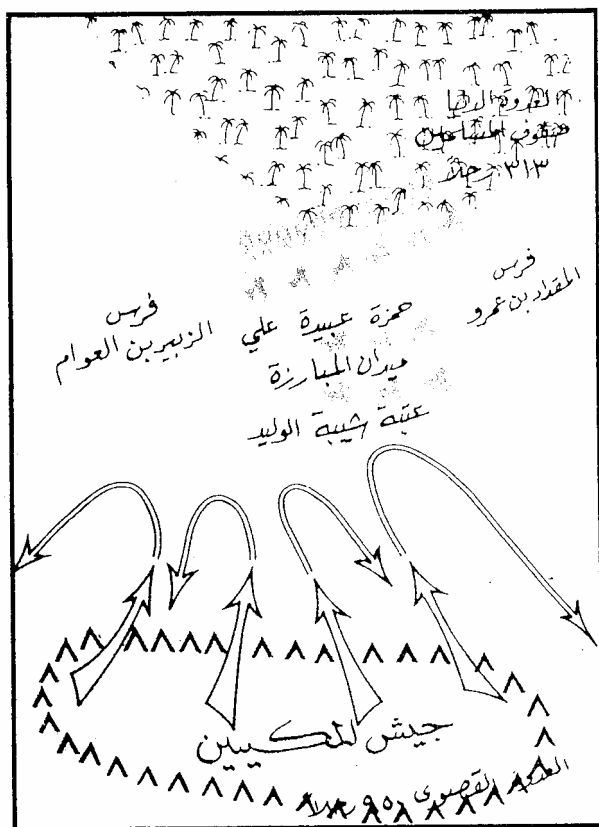 العدوة الدنيا
صفوف المسلمين
٣١٣ رجلاً
فرس
المقداد بن عمرو
فرس
الزبير بن العوام
حمزة عبيدة علي
ميدان المبارزة
عتبة شيبة الوليد
جيش المكيين
العدوة القصوى ٩٥٠ رجلاً